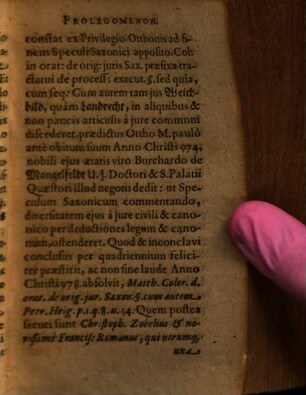 PROLEGOMENON.
constat ex Privilegio Otthonis ad fi-
nem Speculi Saxonici apposito. Col:
in orat: de orig: juris Sax. præfixa tra-
ctatui de process: execut. §. sed quia,
cum seq: Cum autem tam jus Weich-
bild, quàm Landrecht, in aliquibus &
non paucis articulis â jure communi
discederet, prædictus Otho M. paulò
antè obitum suum Anno Christi 974,
nobili ejus ætatis viro Burchardo de
Mangelfeldt U.J. Doctori & S. Palatii
Quæstori illud negotii dedit: ut Spe-
culum Saxonicum commentando,
diversitatem ejus â jure civili & cano-
nico per deductiones legum & cano-
num, ostenderet. Quod & in conclavi
conclusus per quadriennium felici-
ter præstitit, ac non sine laude Anno
Christi 978. absolvit, Matth. Coler. d.
orat. de orig. jur. Saxon. §. cum autem.
Petr. Hrig. p. 1. q. 8. n. 14. Quem postea
secuti sunt Christoph. Zobelius & no-
vissimè Francisc. Romanus, qui utrumq;
una